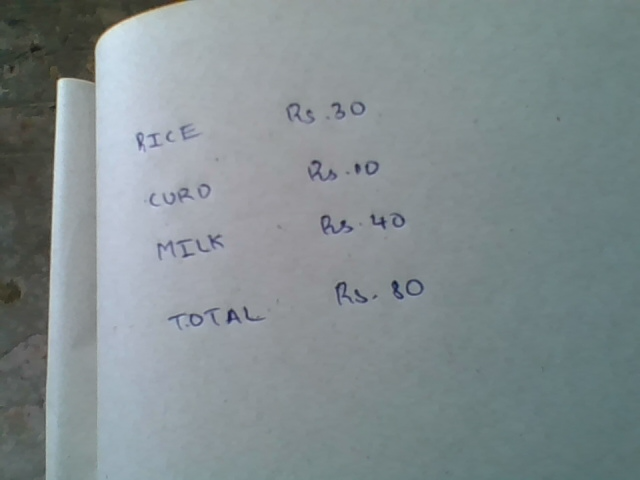 RICE Rs.30
CURD Rs.10
MILK Rs.40
TOTAL Rs.80